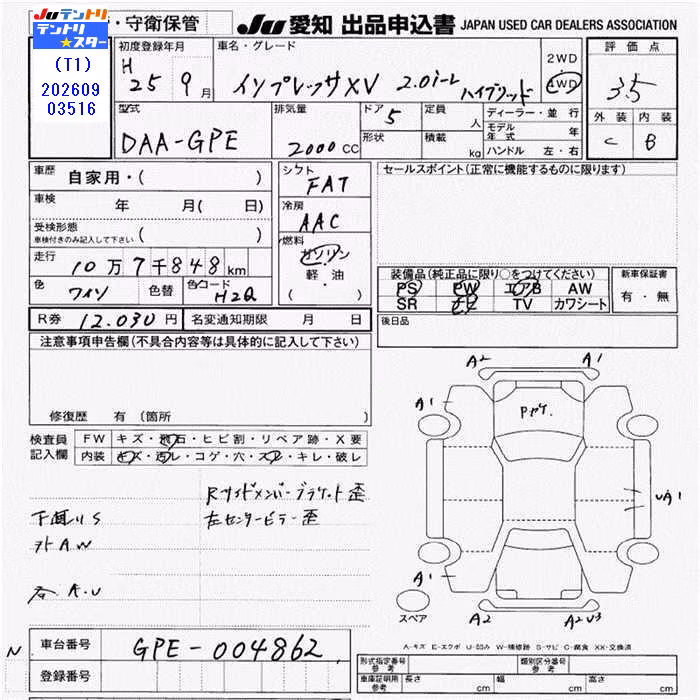 JUテントリ
テントリ★スター
(T1)
202609
03516
・守衛保管
JU 愛知 出品申込書 JAPAN USED CAR DEALERS ASSOCIATION
初度登録年月
H 25 9月
車名・グレード
インプレッサXV 2.0i-L ハイブリッド
2WD
4WD
評価点
3.5
外装 内装
C B
型式
DAA-GPE
排気量
2000 CC
ドア 5
形状
定員 人
積載 kg
ディーラー・並行
モデル年式 年
ハンドル 左・右
車歴 自家用・( )
車検 年 月( 日)
受検形態 ( )
車検付きのみ記入して下さい
走行 10万7千848km
色 ワイン 色替 色コード H2Q
シフト
FAT
冷房
AAC
燃料
ガソリン
軽・油
( ・ )
セールスポイント(正常に機能するものに限ります)
装備品(純正品に限り○をつけてください)
PS PW エアB AW
SR ナビ TV カワシート
新車保証書
有・無
後日品
R券 12.030円 名変通知期限 月 日
注意事項申告欄(不具合内容等は具体的に記入して下さい)
修復歴 有(箇所 )
検査員記入欄
FW キズ・飛石・ヒビ割・リペア跡・X要
内装 キズ・汚レ・コゲ・穴・スレ・キレ・破レ
Rサイドメンバーブラケット歪
下廻りS 左センターピラー歪
外AW
A.U
A2 A1
A1
Pガラ.
UA1
A1
スペア
A2 A2U3
A-キズ E-エクボ U-凹み W-補修跡 S-サビ C-腐食 XX-交換済
N 車台番号 GPE-004862
登録番号
形式指定番号 参考
類別区分番号 参考
車庫証明用 参考 長さ cm 幅 cm 高さ cm